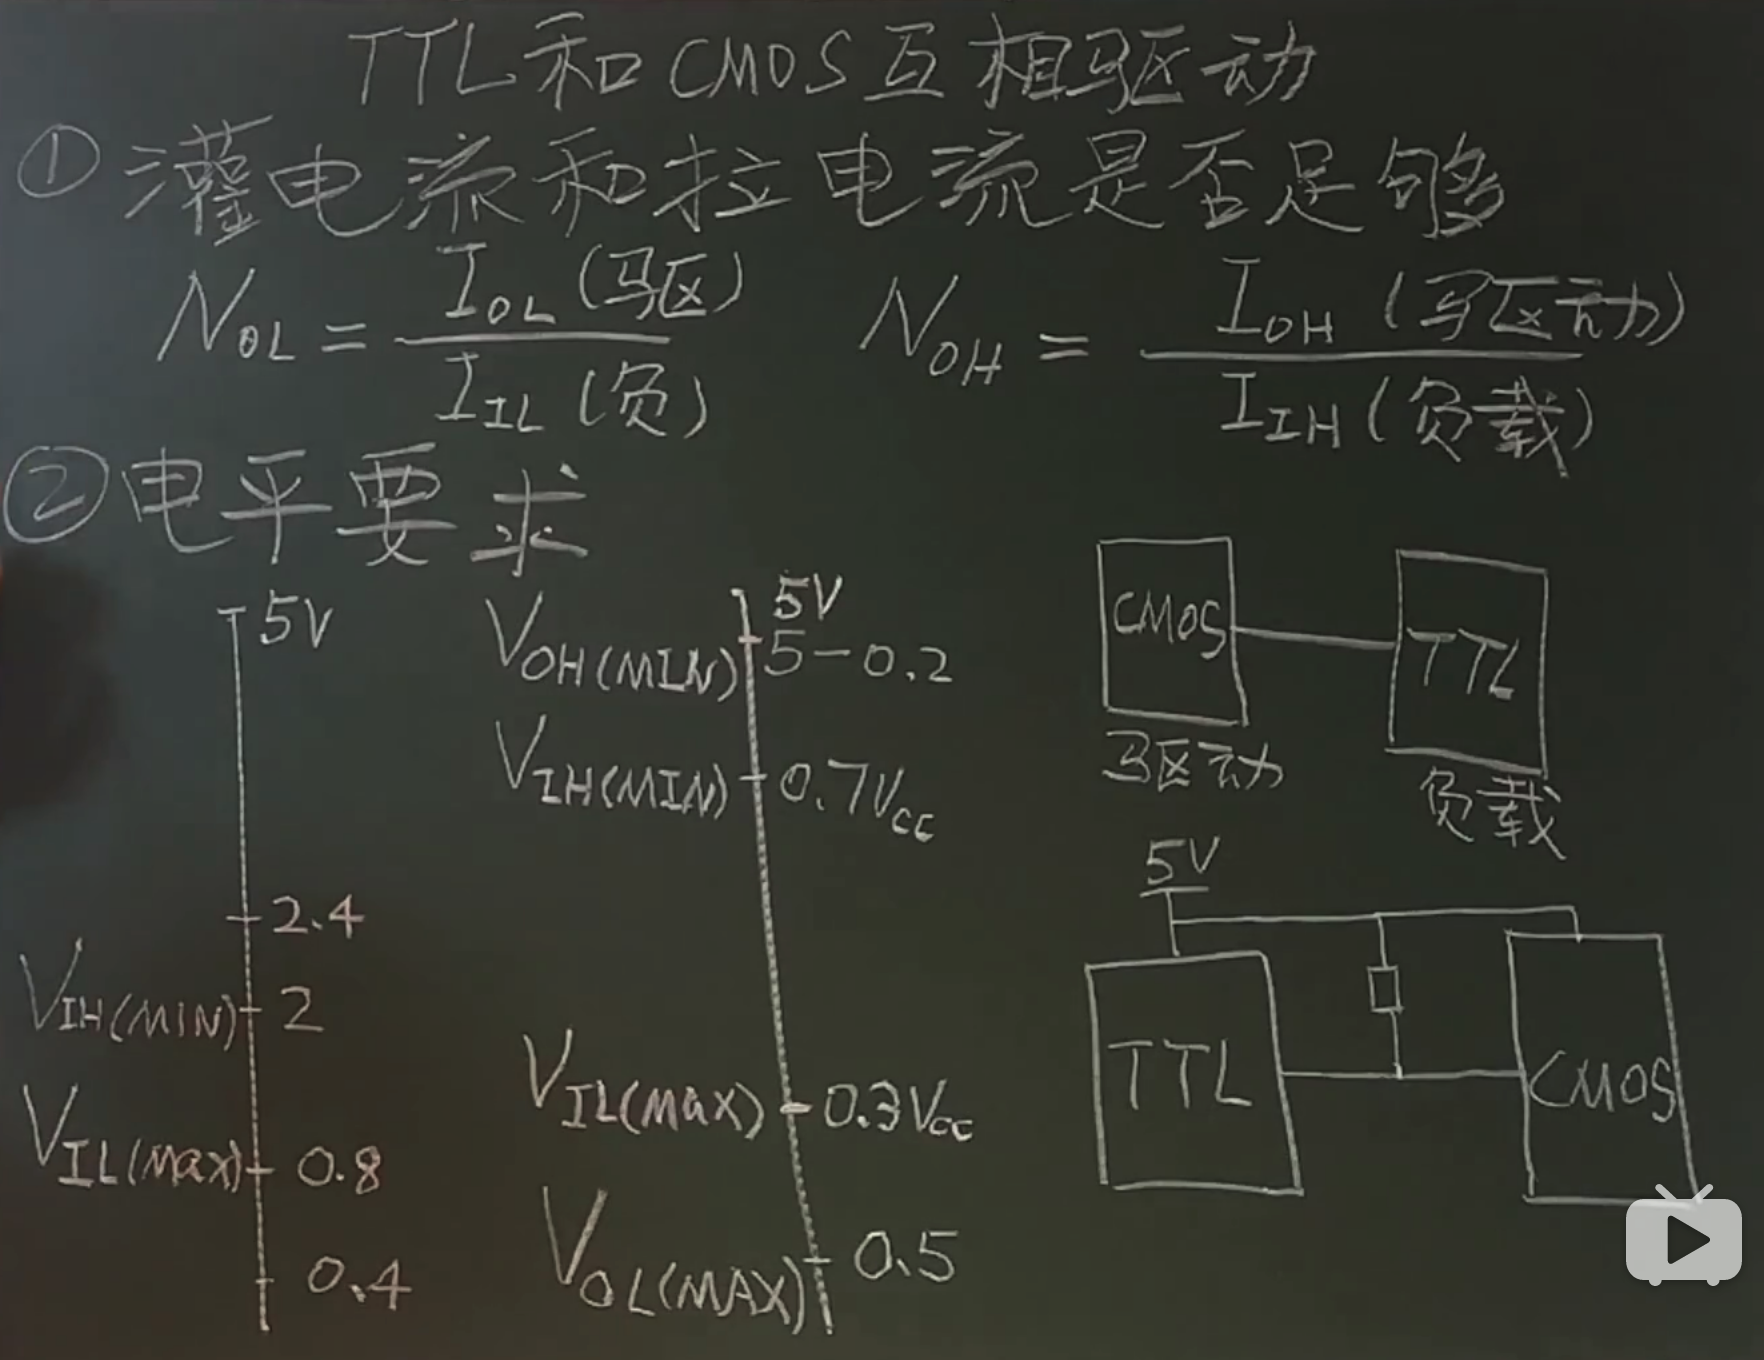 TTL和CMOS互相驱动
①灌电流和拉电流是否足够
N_OL = I_OL(驱) / I_IL(负)
N_OH = I_OH(驱动) / I_IH(负载)
②电平要求
5V
2.4
V_IH(MIN) 2
V_IL(MAX) 0.8
0.4
5V
V_OH(MIN) 5-0.2
V_IH(MIN) 0.7V_CC
V_IL(MAX) 0.3V_CC
V_OL(MAX) 0.5
CMOS
TTL
驱动
负载
5V
TTL
CMOS